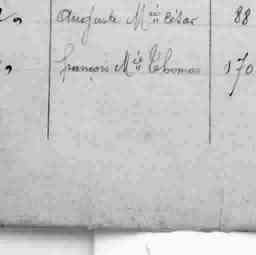 Auguste Mie César 88
François Mie Thomas 170